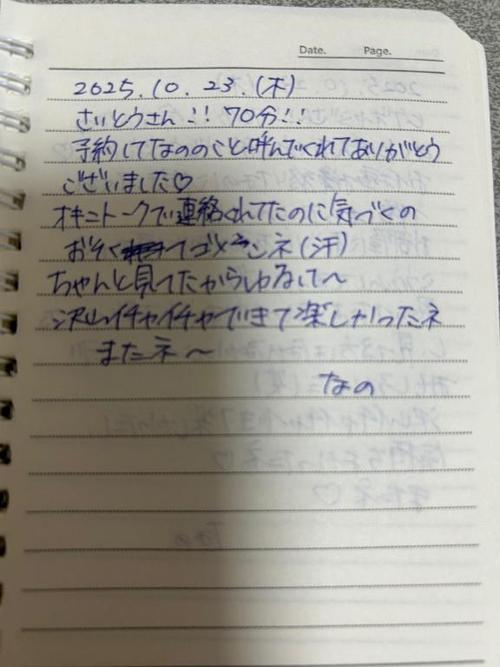 Date. Page.
2025.10.23.(木)
さいとうさん!!70分!!
予約してなののこと呼んでくれてありがとう
ございました♡
オキニトークで連絡くれてたのに気づくの
おそくてゴメンネ(汗)
ちゃんと見てたからゆるして〜
沢山イチャイチャできて楽しかったネ
またネ〜
なの